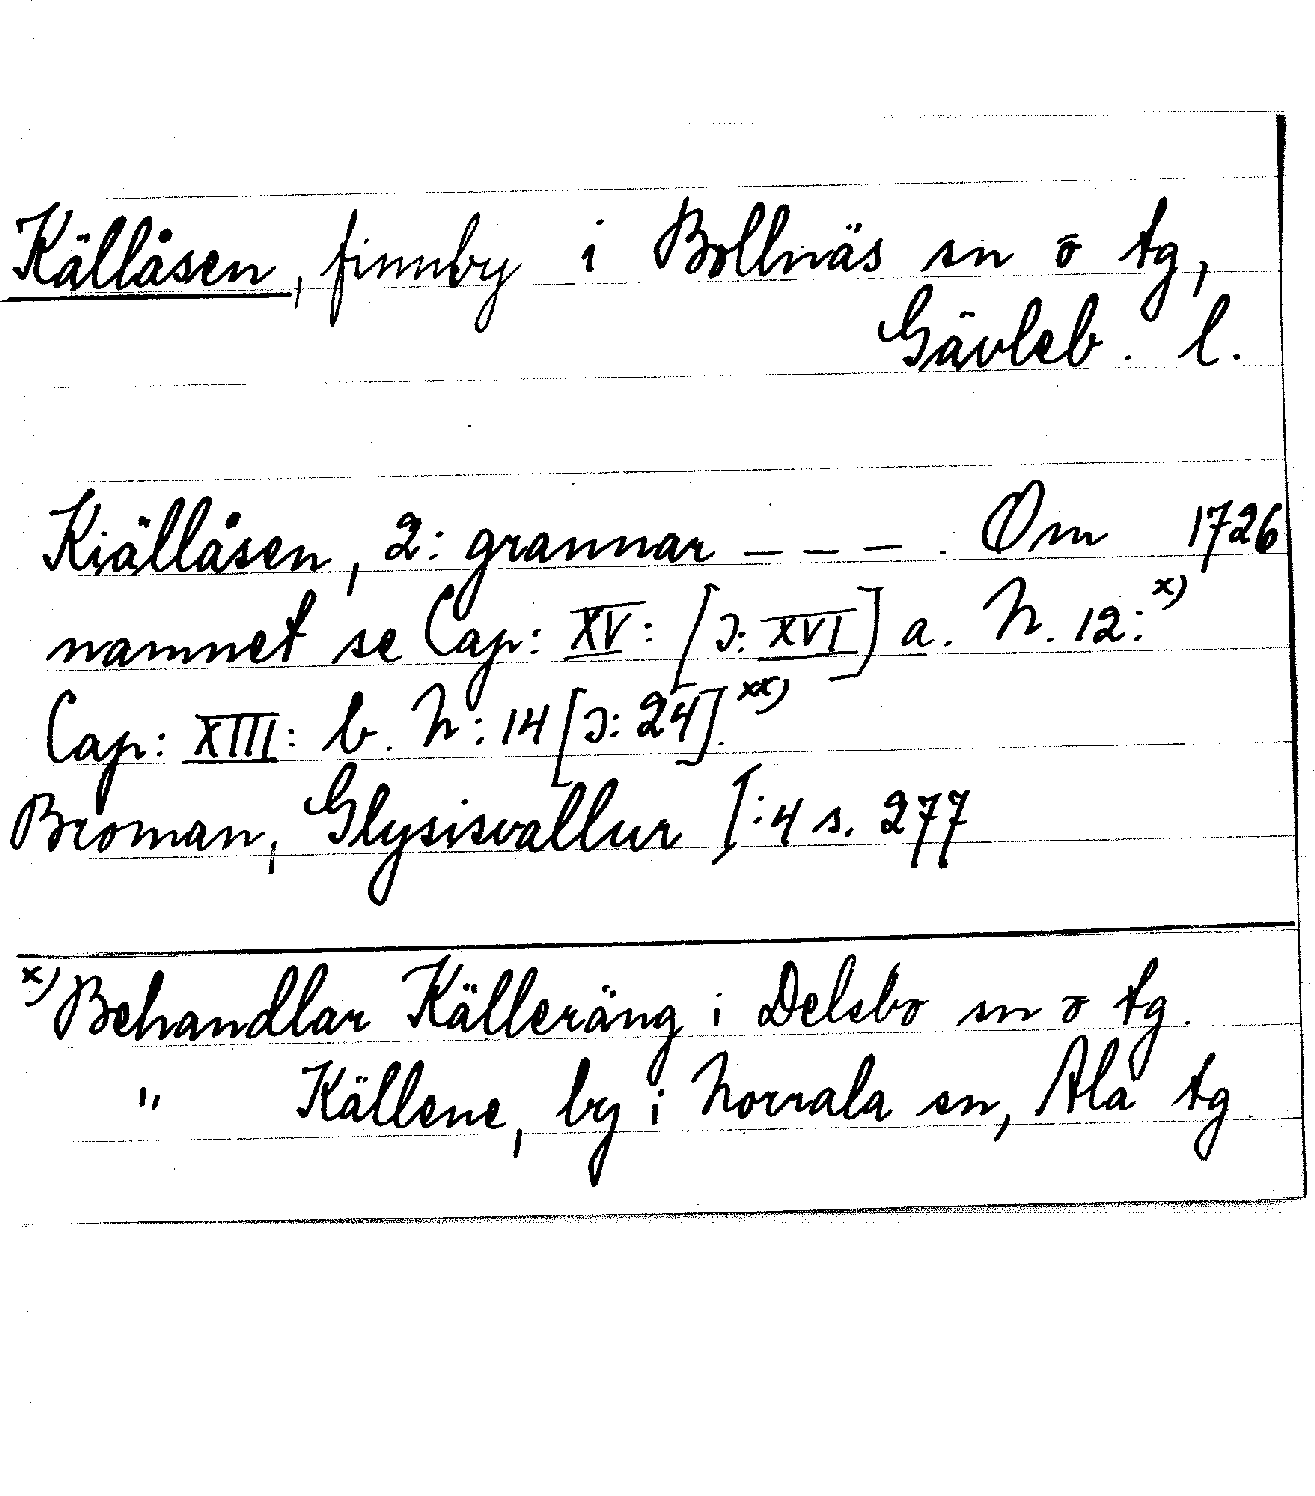 Källåsen, finnby i Bollnäs sn o tg,
Gävleb. l.
Kiällåsen, 2: grannar – – – . Om 1726
namnet se Cap: XV: [ɔ: XVI] a. N. 12: x)
Cap: XIII: b. N: 14 [ɔ: 24]. xx)
Broman, Glysisvallur I:4 s. 277
x) Behandlar Källeräng i Delsbo sn o tg.
" Källene, by i Norrala sn, Ala tg